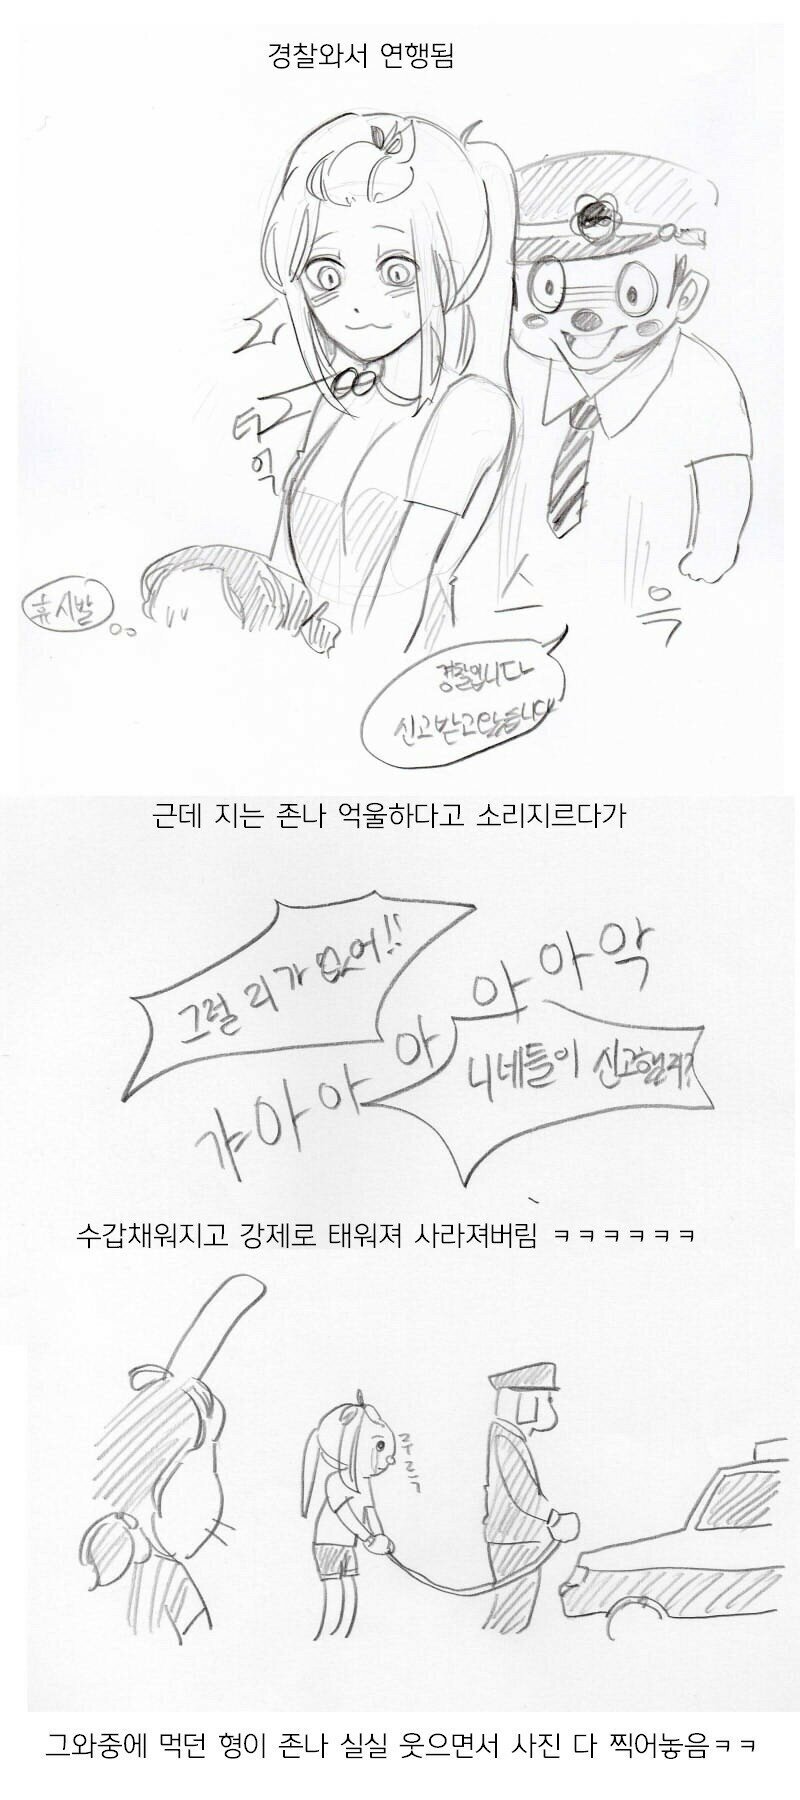 경찰와서 연행됨
턱
휴 시발
스 윽
경찰입니다
신고받고왔습니다
근데 지는 존나 억울하다고 소리지르다가
그럴 리가 없어!!
갸아아아아아악
니네들이 신고했지?
수갑채워지고 강제로 태워져 사라져버림 ㅋㅋㅋㅋㅋㅋ
주르륵
그와중에 먹던 형이 존나 실실 웃으면서 사진 다 찍어놓음ㅋㅋ